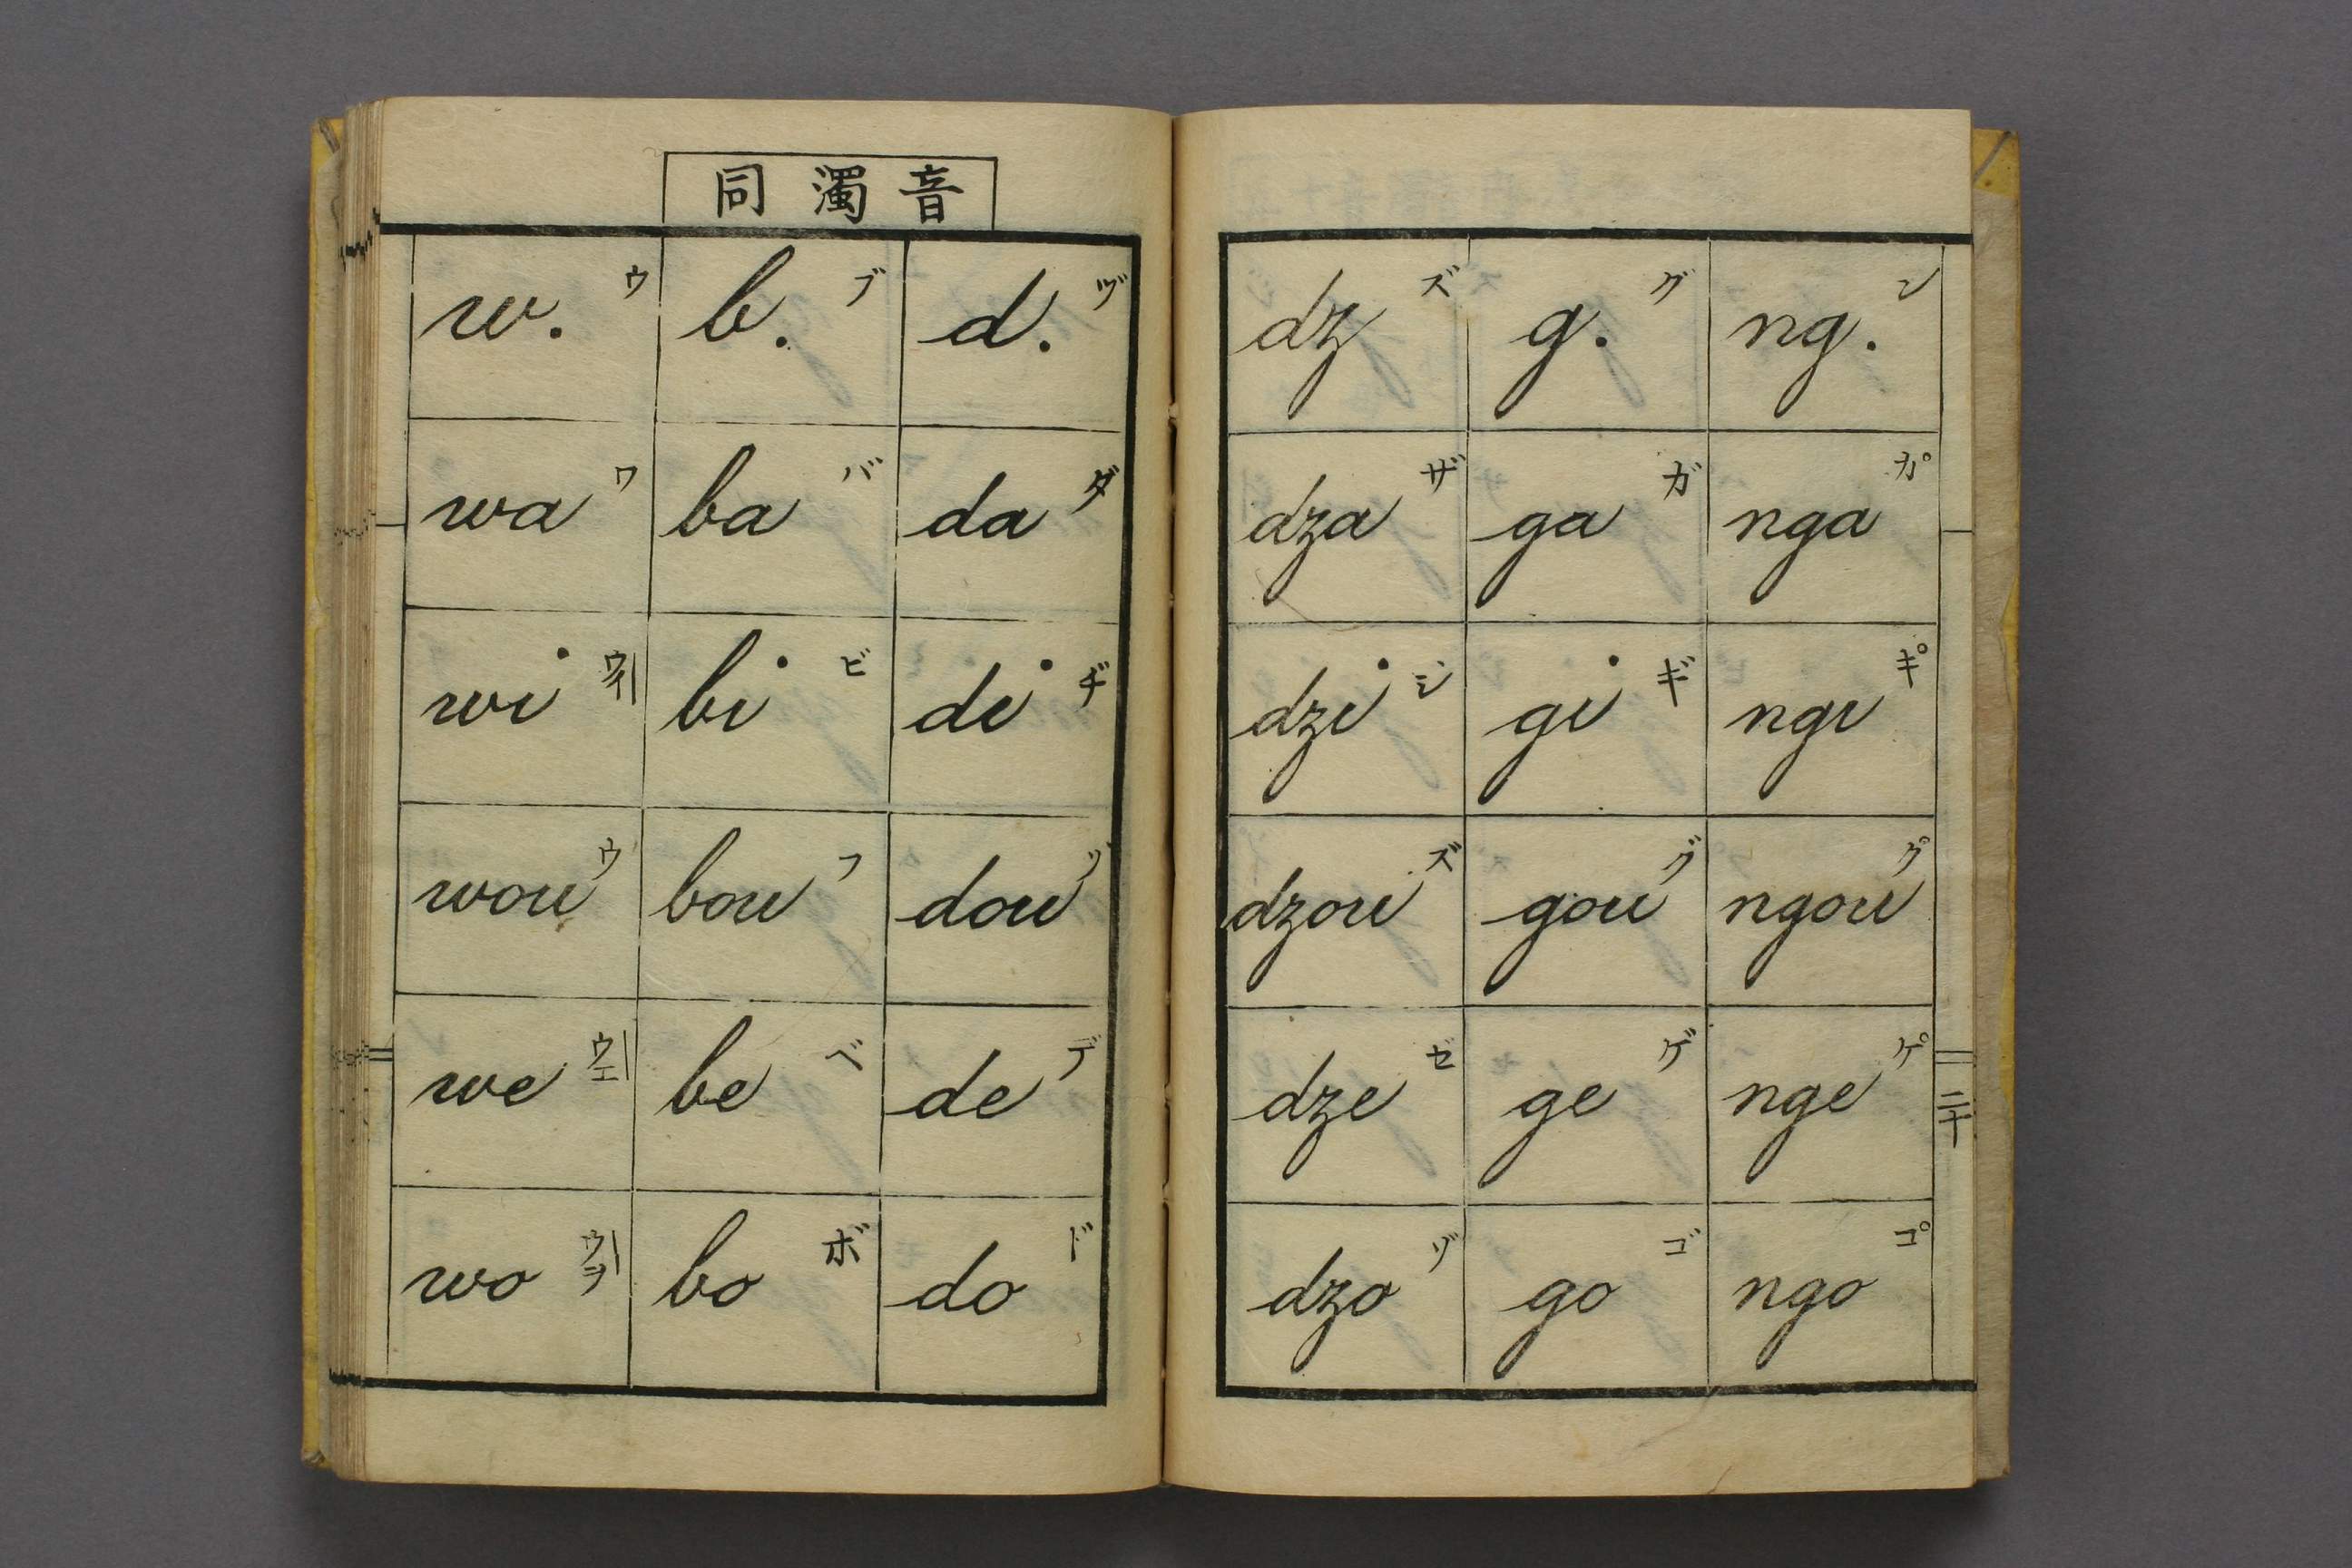 同濁音
w. ウ b. ブ d. ヅ
wa ワ ba バ da ダ
wi ウイ bi ビ di ヂ
wou ウ bou フ dou ヅ
we ウエ be ベ de デ
wo ウヲ bo ボ do ド
dz ズ g. グ ng. ン
dza ザ ga ガ nga カ゚
dzi ジ gi ギ ngi キ゚
dzou ズ gou グ ngou ク゚
dze ゼ ge ゲ nge ケ゚
dzo ゾ go ゴ ngo コ゚
二十